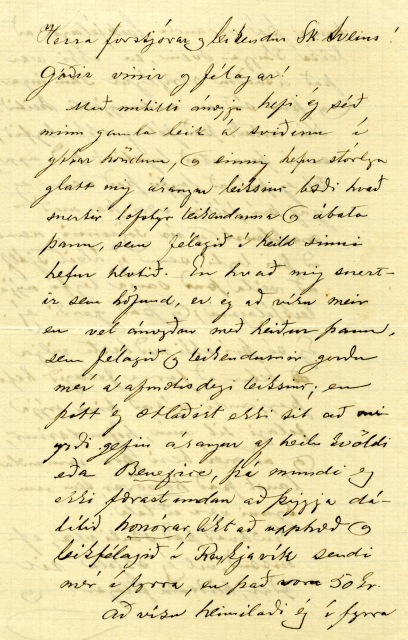 Herra forstjórar og leikendur Sk. Sveins!
Góðir vinir og félagar!
Með mikilli ánægju hefi ég séð
minn gamla leik á sviðinu í
yðar höndum, og einnig hefur stórlega
glatt mig árangur leiksins bæði hvað
snertir lofstýr leikendanna og ábata
þann, sem félagið í heild sinni
hefur hlotið. En hvað mig snert-
ir sem höfund, er ég að vísu meir
en vel ánægður með heiður þann,
sem félagið og leikendurnir gerðu
mér á afmælisdegi leiksins; en
þótt ég ætlaðist ekki til að mér
yrði gefinn árangur af heilu kvöldi
eða Benefice, þá mundi eg
ekki færast undan að þiggja dá-
lítið honórar, líkt að upphæð og
leikfélagið í Reykjavík sendi
mér í fyrra, en það voru 50 kr.
Að vísu heimilaði ég í fyrra